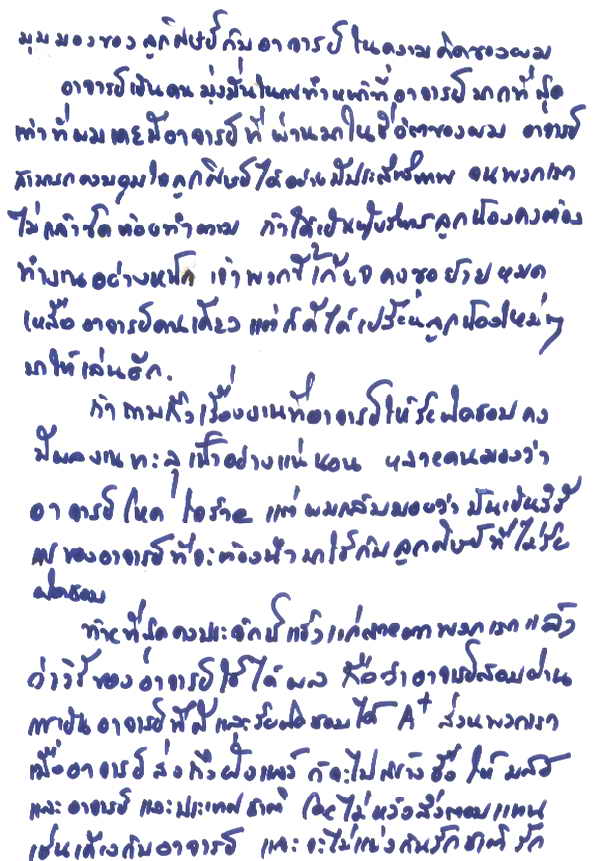 มุมมองของลูกศิษย์กับอาจารย์ในความคิดของผม
อาจารย์เป็นคนมุ่งมั่นในการทำหน้าที่อาจารย์มากที่สุด
เท่าที่ผมเคยมีอาจารย์ที่ผ่านมาในชีวิตของผม อาจารย์
สามารถควบคุมใจลูกศิษย์ได้อย่างมีประสิทธิภาพ จนพวกเรา
ไม่กล้าโต้ตอบทำตาม ถ้าได้เป็นผู้บริหารลูกน้องคงต้อง
ทำงานอย่างหนัก เจ้าพวกขี้เกียจคงขอย้ายหมด
เหลืออาจารย์คนเดียว แต่ก็ดีได้เปลี่ยนลูกน้องใหม่ๆ
มาให้เล่นอีก.
ถ้าถามถึงเรื่องงานที่อาจารย์ให้รับผิดชอบคง
มีผลงานทะลุเป้าอย่างแน่นอน หลายคนมองว่า
อาจารย์โหด ใจร้าย แต่ผมกลับมองว่า มันเป็นวิธี
การของอาจารย์ที่จะต้องนำมาใช้กับลูกศิษย์ที่ไม่รับ
ผิดชอบ
ท้ายที่สุดคงประจักษ์แจ้งแก่สายตาพวกเราแล้ว
ว่าวิธีของอาจารย์ใช้ได้ผล ถือว่าอาจารย์สอบผ่าน
การเป็นอาจารย์ที่ดีและรับผิดชอบได้ A+ ส่วนพวกเรา
เมื่ออาจารย์ส่งถึงฝั่งแล้ว ก็จะไปสร้างชื่อให้ มสธ
และอาจารย์ และประเทศชาติ โดยไม่หวังสิ่งตอบแทน
เช่นเดียวกับอาจารย์ และจะไม่แบ่งกันรักชาติ รัก